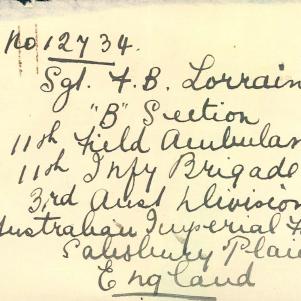 No 12734.
Sgt. F. B. Lorrain
"B" Section
11th Field Ambulan
11th Infy Brigade
3rd Aust Division
Australian Imperial F
Salisbury Plai
England